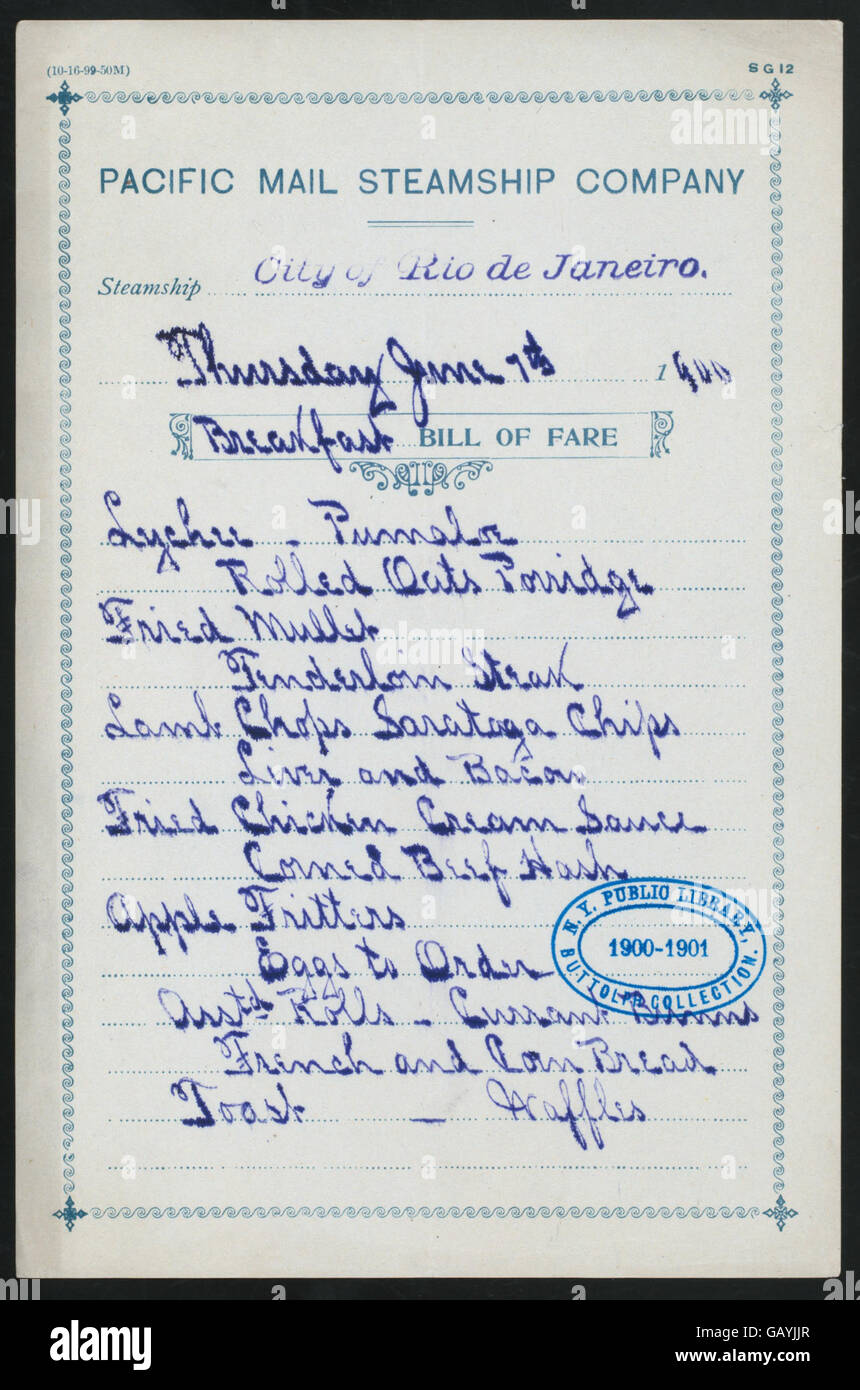 (10-16-99-50M) SG12
PACIFIC MAIL STEAMSHIP COMPANY
Steamship City of Rio de Janeiro.
Thursday June 7th 1900
Breakfast BILL OF FARE
Lychee - Pumaloe
Rolled Oats Porridge
Fried Mullet
Tenderloin Steak
Lamb Chops Saratoga Chips
Liver and Bacon
Fried Chicken Cream Sauce
Corned Beef Hash
Apple Fritters
Eggs to Order
N.Y. PUBLIC LIBRARY,
1900-1901
BUTTOLPH COLLECTION.
Asstd Rolls - Currant Bunns
French and Corn Bread
Toast - Waffles
alamy
Image ID: GAYJJR
www.alamy.com